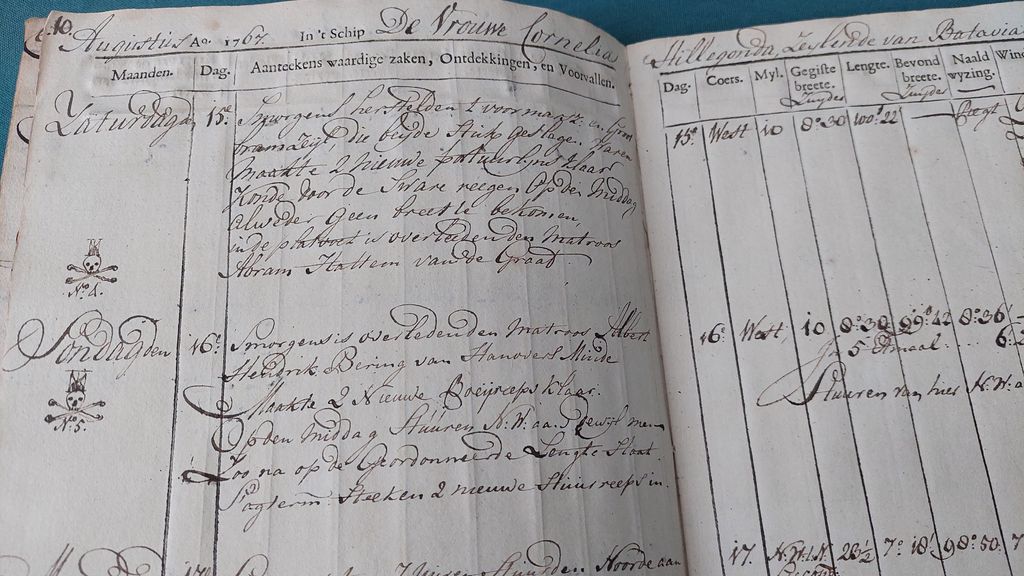 10.
Augustus Ao. 1767. In 't Schip De Vrouwe Cornelia
Maanden. Dag. Aanteekens waardige zaken, Ontdekkingen, en Voorvallen.
Zaturdagh 15e Smorgens herstelden 't voormars en Groot
bramzeijl die beijde Stuk geslage waren
maakte 2 nieuwe klaar
Konde door de Sware reegen Op den Middag
alweeder Geen breete bekomen
inde is overleeden den Matroos
Abram Hattem van de Graaf
No. 4.
Sondag den 16e Smorgens is overleeden den Matroos Albert
Hendrik Bering van Hanovers Minde
Maakte 2 Nieuwe Boeijreeps klaar.
Op den Middag Stuuren N.W. aan dewijl men
Zoo na op de Geordonneerde Lengte Staat
Steeken 2 nieuwe Stuurreeps in.
No. 5.
17e Noorde aan
Hillegonda Zeijlende van Batavia
Dag. Coers. Myl. Gegiste breete. Lengte. Bevond breete. Naald wyzing. Wind
Zuyder Zuyder
15e West 10 8°30 100°22 — Oogt
16e West 10 8°38 99°42 8°36'
In 5 Etmaal
Stuuren van hier N.W. a
17. N.W.t.N 28½ 7°18' 98°50.